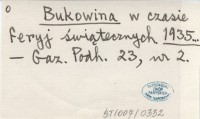 o
Bukowina w czasie
feryj świątecznych 1935...
— Gaz. Podh. 23, nr 2.
57/009/0332